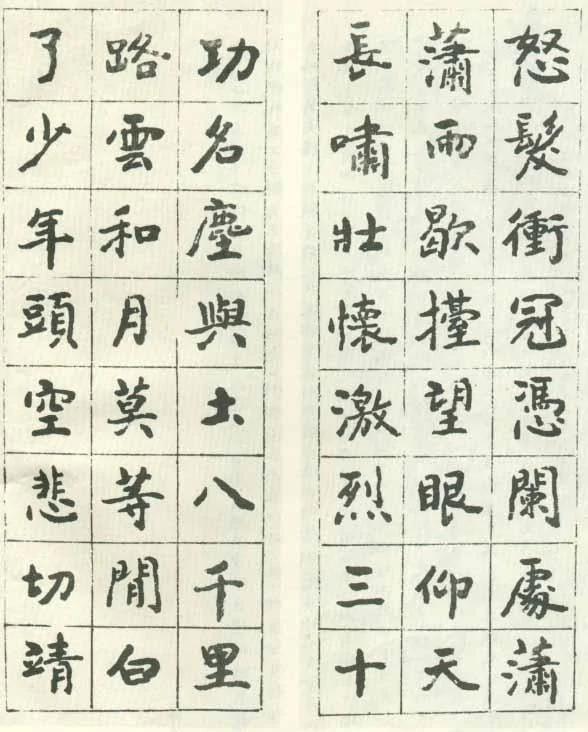 怒髮衝冠憑闌處瀟
瀟雨歇擡望眼仰天
長嘯壯懷激烈三十
功名塵與土八千里
路雲和月莫等閒白
了少年頭空悲切靖